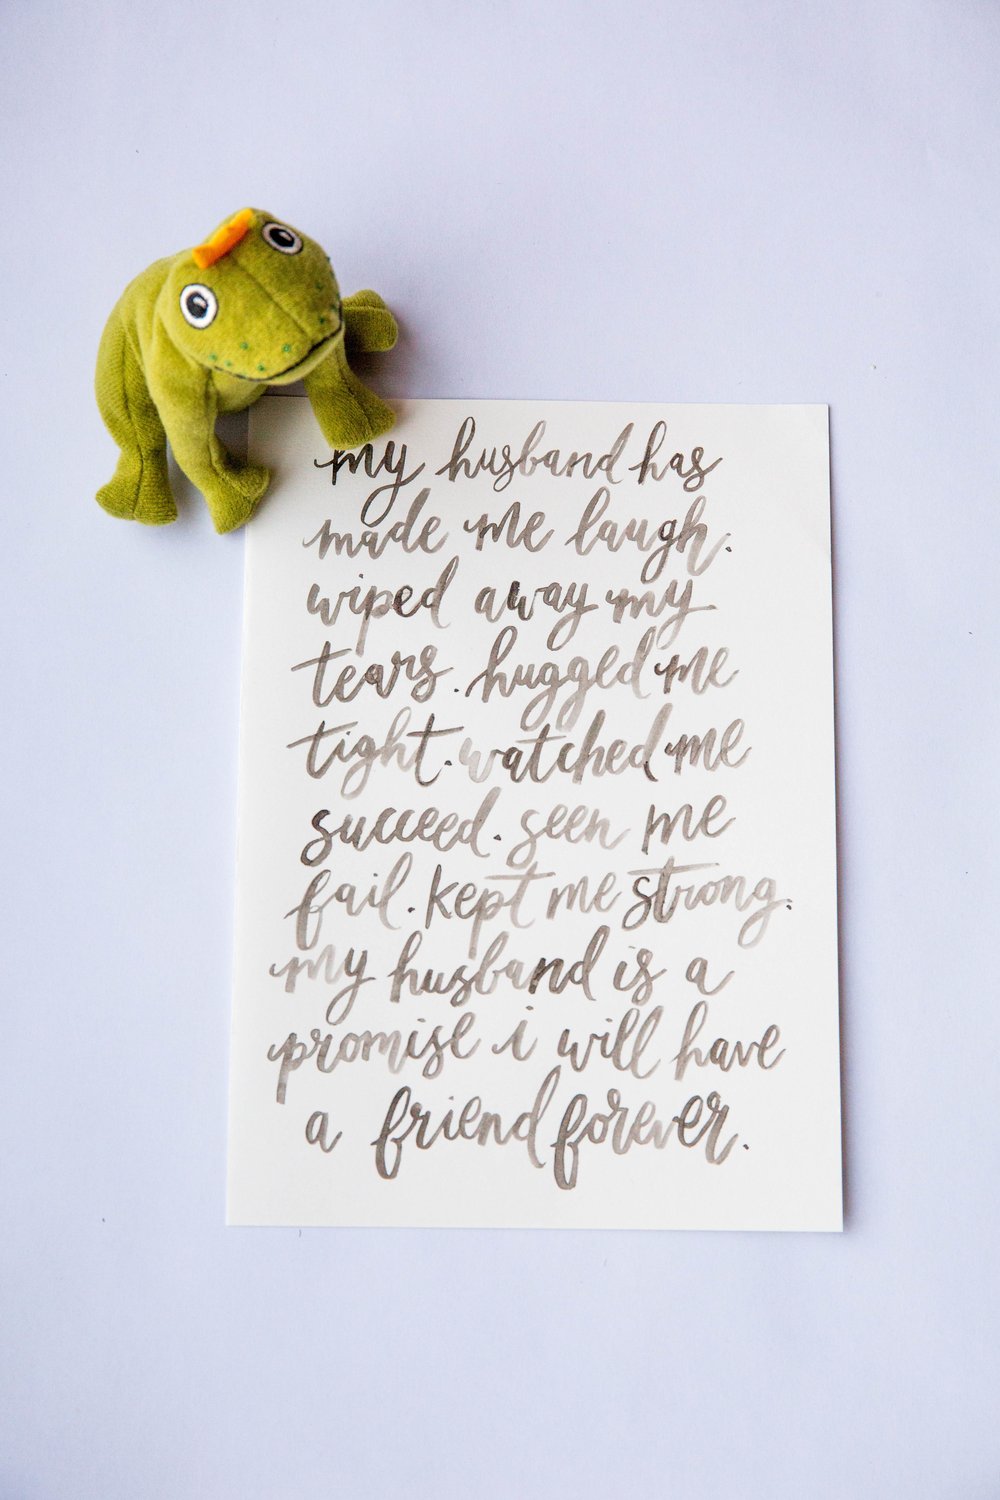 my husband has
made me laugh.
wiped away my
tears. hugged me
tight. watched me
succeed. seen me
fail. kept me strong.
my husband is a
promise i will have
a friend forever.